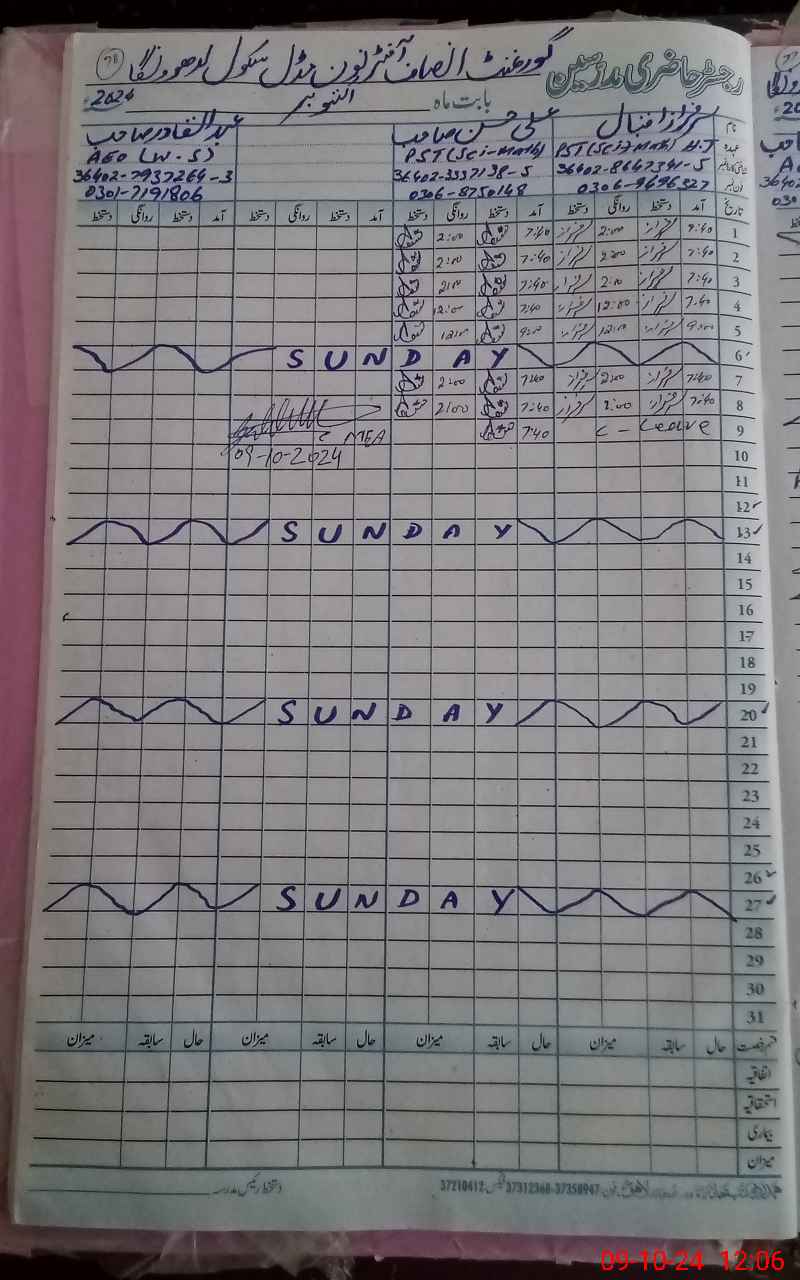 رجسٹر حاضری مدرسین گورنمنٹ انصاف آفٹرنون مڈل سکول
78
بابت ماہ اکتوبر 2024ء
نام سرفراز اقبال علی حسن صاحب عبدالقادر صاحب
عہدہ PST(Sci-Math) H.T PST(Sci-Math) AEO (W-S)
36402-8647341-5 36402-3337138-5 36402-7937264-3
0306-9696327 0306-8750148 0301-7191806
تاریخ آمد دستخط روانگی دستخط آمد دستخط روانگی دستخط آمد دستخط روانگی دستخط آمد دستخط روانگی دستخط
1 7:40 سرفراز 2:00 سرفراز 7:40 2:00
2 7:40 سرفراز 2:00 سرفراز 7:40 2:00
3 7:40 سرفراز 2:00 سرفراز 7:40 2:00
4 7:40 سرفراز 12:00 سرفراز 7:40 12:00
5 9:00 سرفراز 12:00 سرفراز 9:00 12:00
6 SUNDAY
7 7:40 سرفراز 2:00 سرفراز 7:40 2:00
8 7:40 سرفراز 2:00 سرفراز 7:40 2:00
9 C-Leave 7:40 MEA
10 09-10-2024
11
12
13 SUNDAY
14
15
16
17
18
19
20 SUNDAY
21
22
23
24
25
26
27 SUNDAY
28
29
30
31
قسم رخصت حال سابقہ میزان حال سابقہ میزان حال سابقہ میزان حال سابقہ میزان
اتفاقیہ
استحقاقیہ
بیماری
میزان
دستخط رئیس مدرسہ
فون 37312368-37358947 فیکس 37210412
09-10-24 12:06